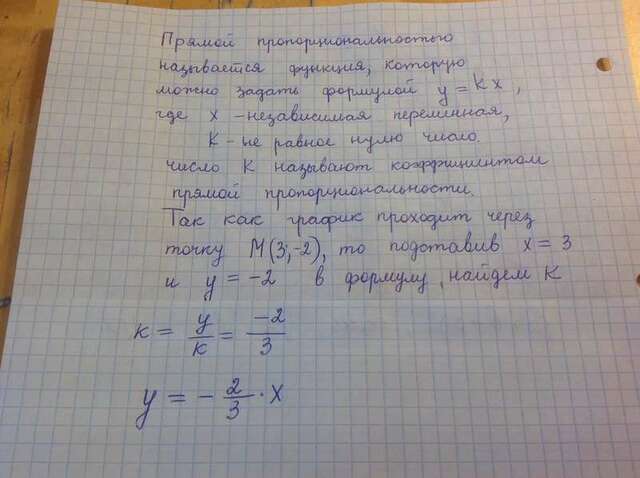 Прямой пропорциональностью
называется функция, которую
можно задать формулой y = kx,
где x - независимая переменная,
k - не равное нулю число.
число k называют коэффициентом
прямой пропорциональности.
Так как график проходит через
точку M(3;-2), то подставив x = 3
и y = -2 в формулу, найдем k
k = y/k = -2/3
y = - 2/3 · x